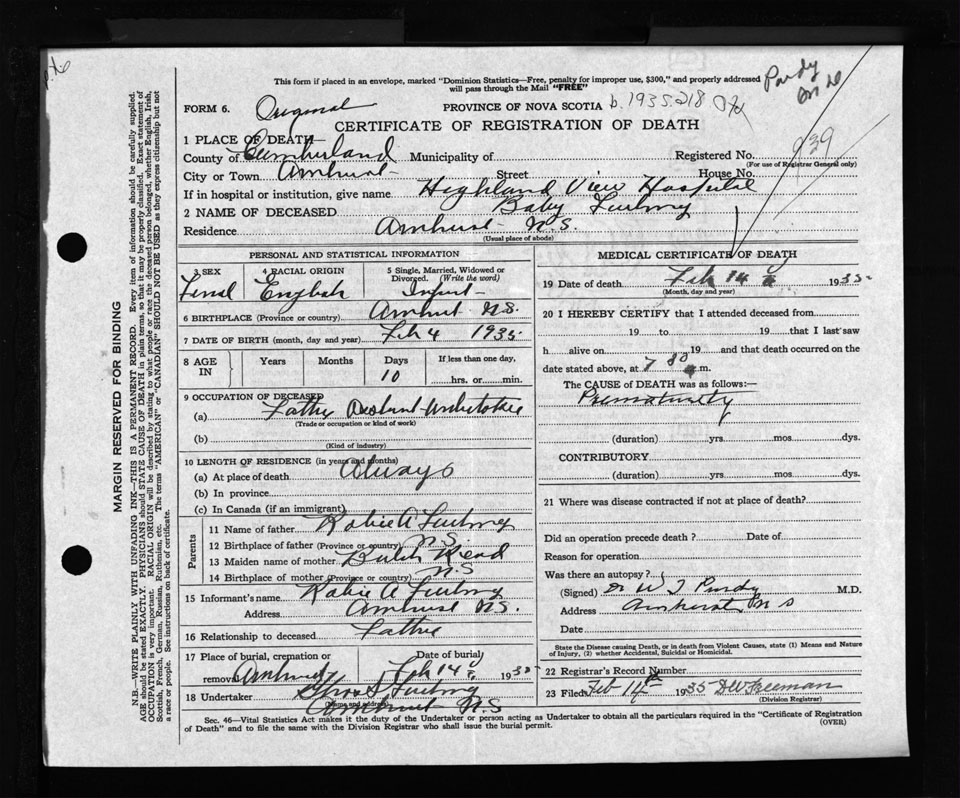 This form if placed in an envelope, marked "Dominion Statistics—Free, penalty for improper use, $300," and properly addressed
will pass through the Mail "FREE"
Purdy
FORM 6. Original PROVINCE OF NOVA SCOTIA b. 1935.218
CERTIFICATE OF REGISTRATION OF DEATH
939
1 PLACE OF DEATH—
County of Cumberland Municipality of Registered No.
(For use of Registrar General only)
City or Town Amherst Street House No.
If in hospital or institution, give name Highland View Hospital
2 NAME OF DECEASED Baby
Residence Amherst N.S.
(Usual place of abode)
MARGIN RESERVED FOR BINDING
N.B.—WRITE PLAINLY WITH UNFADING INK—THIS IS A PERMANENT RECORD. Every item of information should be carefully supplied.
AGE should be stated EXACTLY. PHYSICIANS should STATE CAUSE OF DEATH in plain terms, so that it may be properly classified. Exact statement of
OCCUPATION is very important. RACIAL ORIGIN will be described by stating to what people or race the deceased person belonged, whether English, Irish,
Scottish, French, German, Russian, Ruthenian, etc. The terms "AMERICAN" or "CANADIAN" SHOULD NOT BE USED as they express citizenship but not
a race or people. See instructions on back of certificate.
PERSONAL AND STATISTICAL INFORMATION
3 SEX 4 RACIAL ORIGIN 5 Single, Married, Widowed or
Divorced. (Write the word)
Femal English Infant
6 BIRTHPLACE (Province or country) Amherst N.S.
7 DATE OF BIRTH (month, day and year) Feb 4 1935
8 AGE IN Years Months Days If less than one day,
10 hrs. or min.
9 OCCUPATION OF DECEASED
(a) Father
(Trade or occupation or kind of work)
(b)
(Kind of industry)
10 LENGTH OF RESIDENCE (in years and months)
(a) At place of death Always
(b) In province
(c) In Canada (if an immigrant)
Parents
11 Name of father A
12 Birthplace of father (Province or country) N.S.
13 Maiden name of mother Read
14 Birthplace of mother (Province or country) N.S
15 Informant's name A
Address Amherst N.S.
16 Relationship to deceased Father
17 Place of burial, cremation or Date of burial
removal Amherst Feb 14 1935
18 Undertaker
(Name and address)
Amherst N.S
MEDICAL CERTIFICATE OF DEATH
19 Date of death Feb 14 1935
(Month, day and year)
20 I HEREBY CERTIFY that I attended deceased from
19 to 19 that I last saw
h alive on 19 and that death occurred on the
date stated above, at 7 30 m.
The CAUSE OF DEATH was as follows:—
Prematurity
(duration) yrs. mos. dys.
CONTRIBUTORY
(duration) yrs. mos. dys.
21 Where was disease contracted if not at place of death?
Did an operation precede death? Date of
Reason for operation
Was there an autopsy?
(Signed) Dr W T Purdy M.D.
Address Amherst N S
Date
State the Disease causing Death, or in death from Violent Causes, state (1) Means and Nature
of Injury, (2) whether Accidental, Suicidal or Homicidal.
22 Registrar's Record Number
23 Filed Feb 14th 1935 D W Freeman
(Division Registrar)
Sec. 46—Vital Statistics Act makes it the duty of the Undertaker or person acting as Undertaker to obtain all the particulars required in the "Certificate of Registration
of Death" and to file the same with the Division Registrar who shall issue the burial permit.
(OVER)